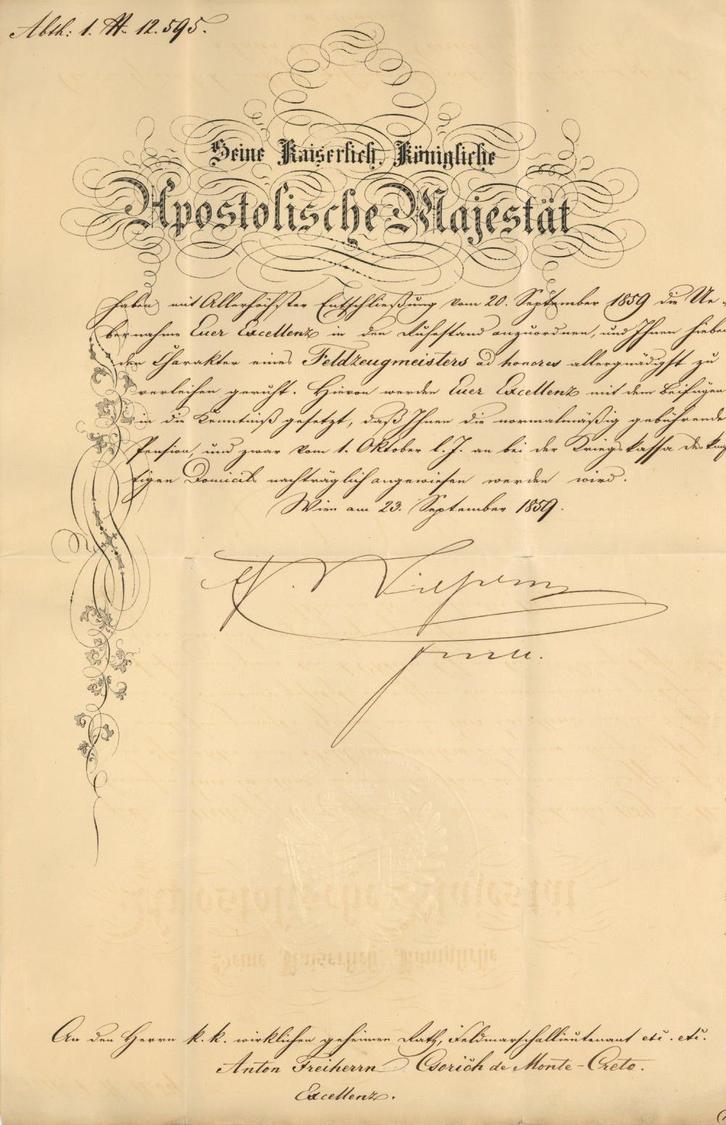 Abth: 1. N. 12.595.
Seine Kaiserlich, Königliche
Apostolische Majestät
haben mit Allerhöchster Entschließung vom 20. September 1859 die Ue-
bernahme Euer Excellenz in den Ruhestand anzuordnen, und Ihnen hiebei
den Charakter eines Feldzeugmeisters ad honores allergnädigst zu
verleihen geruht. Hievon werden Euer Excellenz mit dem Beifügen
in die Kenntniß gesetzt, daß Ihnen die normalmäßig gebührende
Pension, und zwar vom 1. Oktober l. J. an bei der Kriegskassa des künf
tigen Domicils nachträglich angewiesen werden wird.
Wien am 23. September 1859.
An den Herrn k. k. wirklichen geheimen Rath, Feldmarschallieutenant etc. etc.
Anton Freiherrn Csorich de Monte-Creto.
Excellenz.